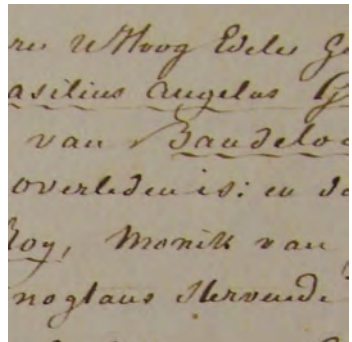 res UHoog Edele Ge
asilius Angelus G
van Baudeloo
overleden is: en da
Roy, Monik van
noglans Stervende